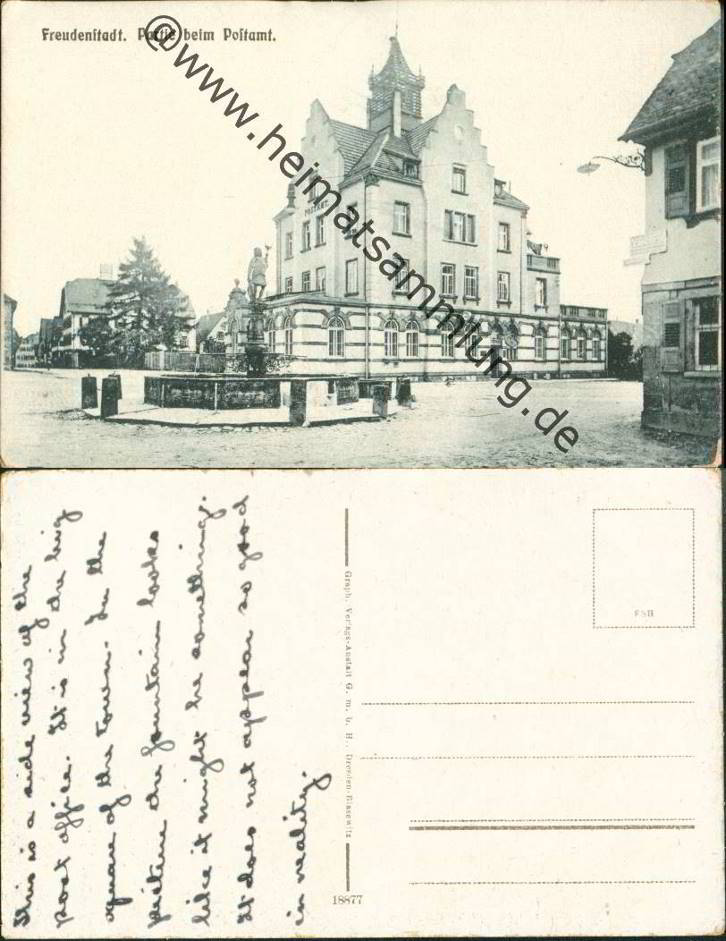 Freudenstadt. Partie beim Postamt.
@www.heimatsammlung.de
POSTAMT.
This is a side view of the
post office. It is in the big
square of the town. In the
picture the fountain looks
like it might be something.
It does not appear so good
in reality.
Graph. Verlags-Anstalt G. m. b. H., Dresden-Blasewitz
18877